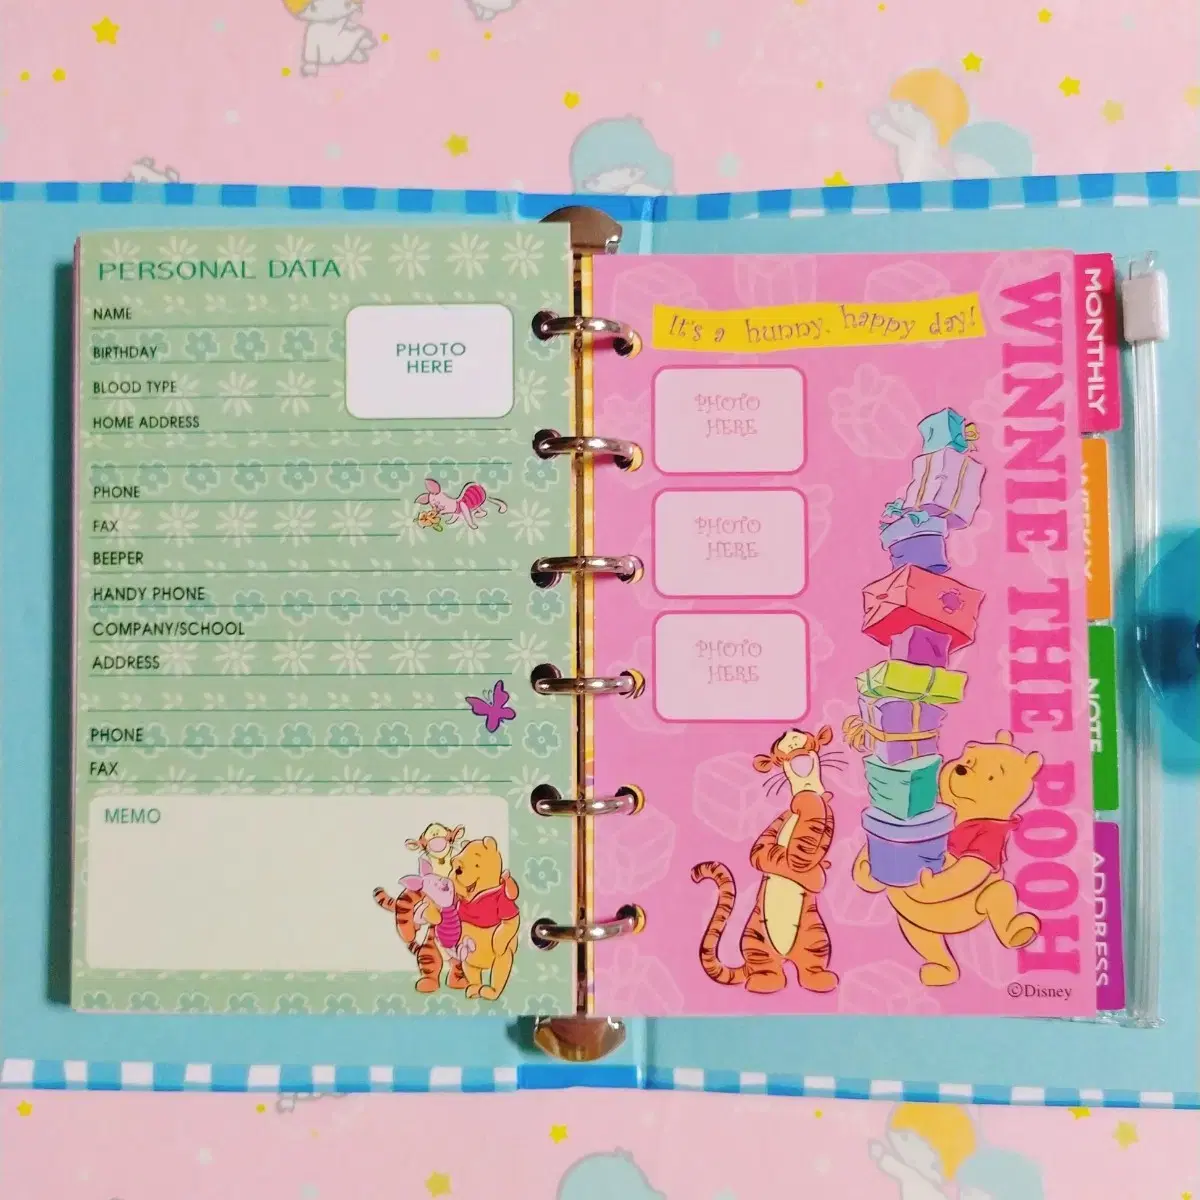 PERSONAL DATA
NAME
BIRTHDAY
BLOOD TYPE
HOME ADDRESS
PHONE
FAX
BEEPER
HANDY PHONE
COMPANY/SCHOOL
ADDRESS
PHONE
FAX
PHOTO
HERE
MEMO
It's a hunny, happy day!
PHOTO
HERE
PHOTO
HERE
PHOTO
HERE
WINNIE THE POOH
©Disney
MONTHLY
WEEKLY
NOTE
ADDRESS